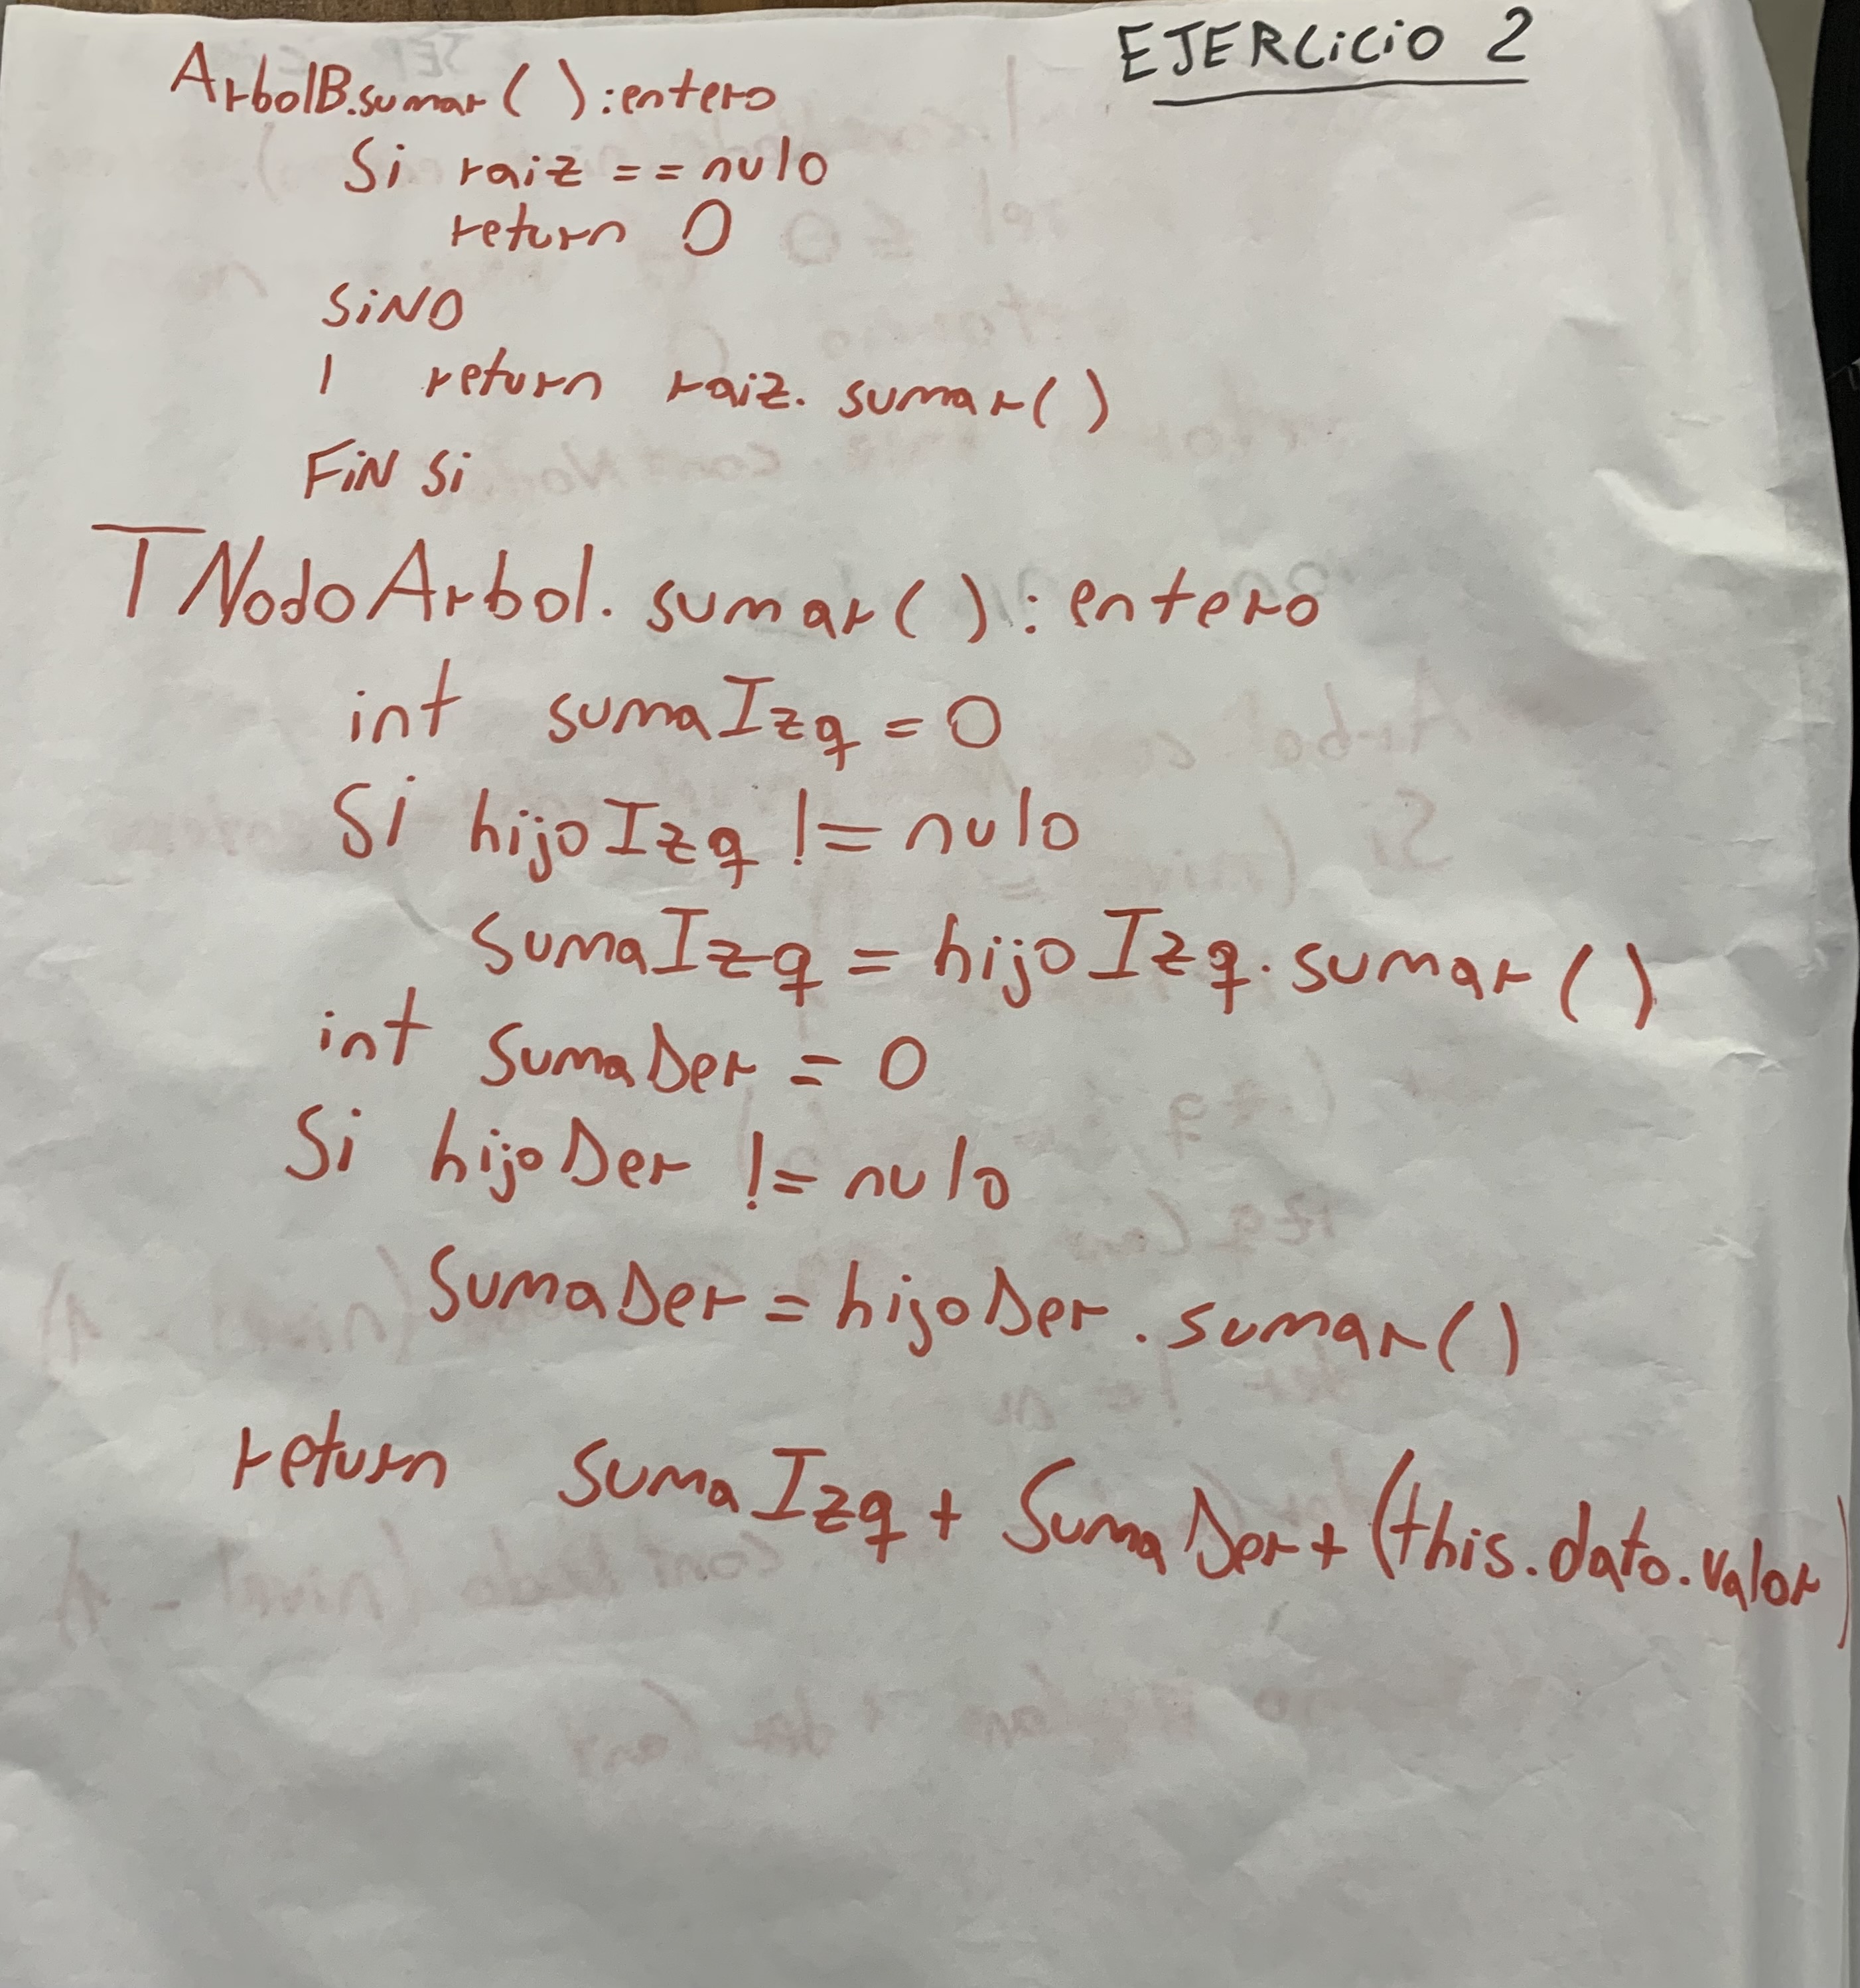 EJERCiCiO 2
ArbolB.sumar ( ) : entero
Si raiz == nulo
return 0
SiNO
| return raiz. sumar( )
FiN Si
TNodoArbol. sumar ( ) : entero
int sumaIzq = 0
Si hijoIzq != nulo
sumaIzq = hijoIzq. sumar ( )
int sumaDer = 0
Si hijoDer != nulo
SumaDer = hijoDer . sumar( )
return sumaIzq + SumaDer + (this.dato.valor)